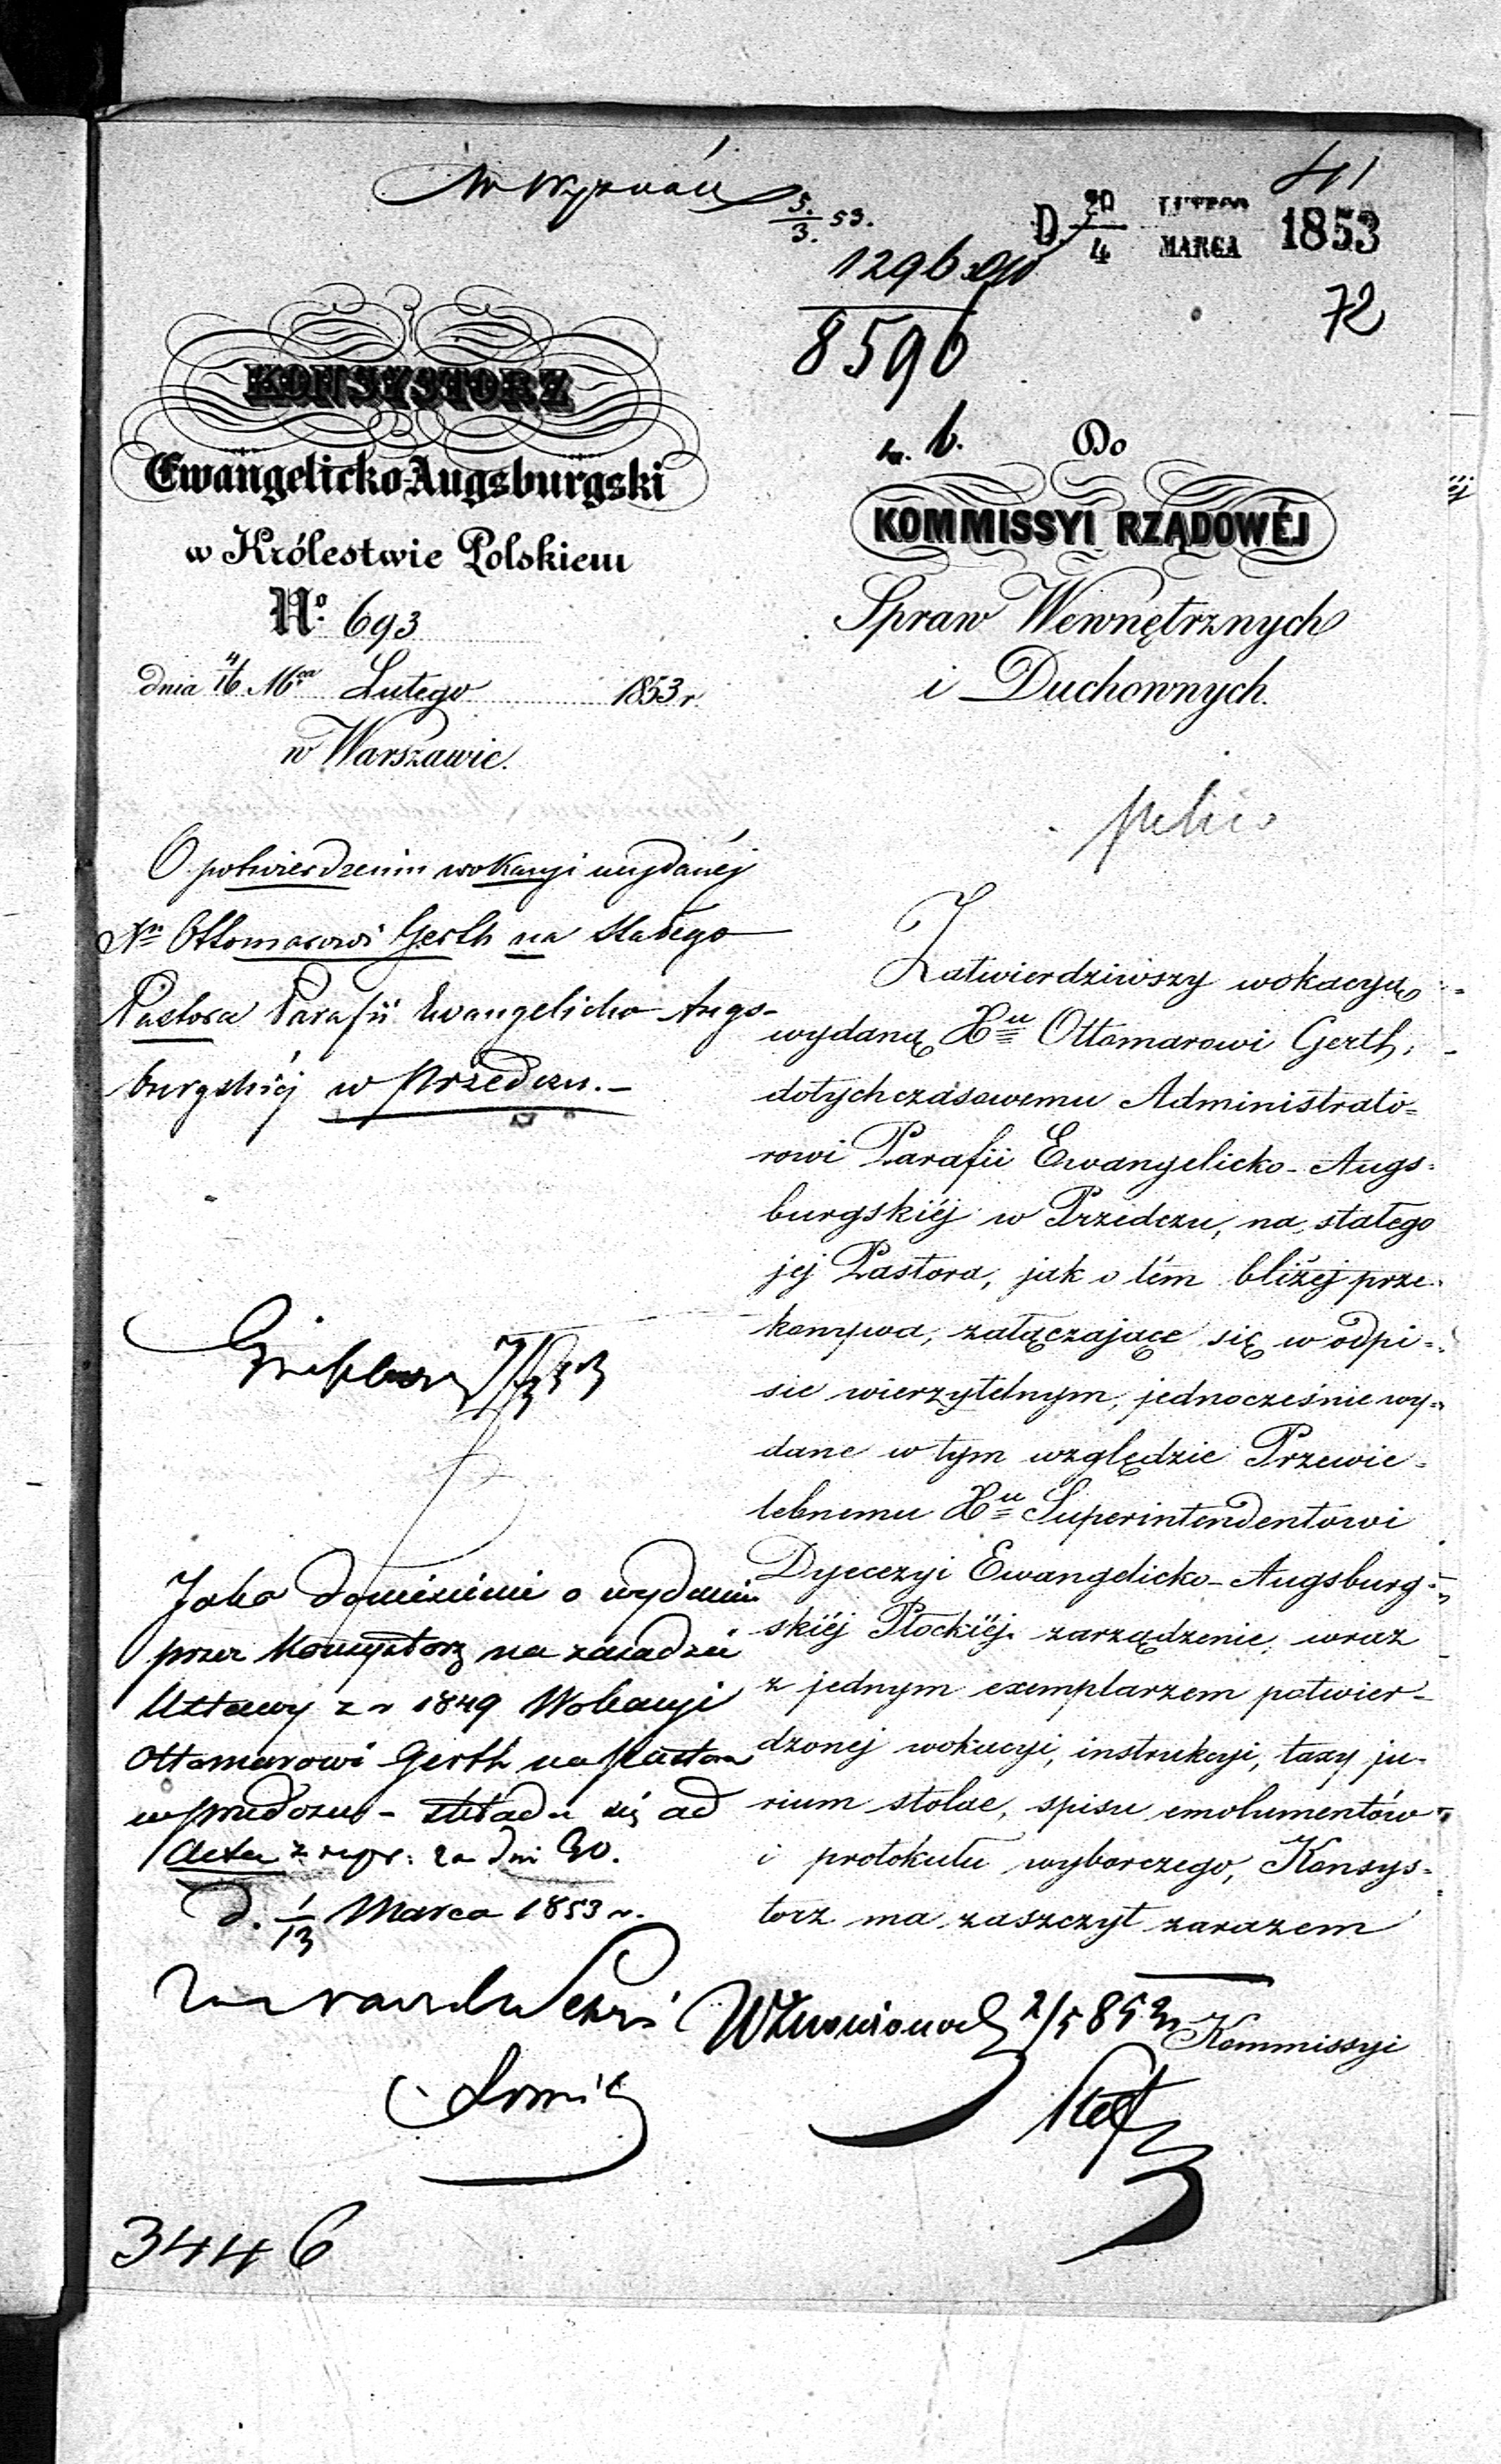 W Wyznań
5/3. 53.
41
D. 20/4 LUTEGO MARCA 1853
1296
8596
72
KONSYSTORZ
Ewangelicko-Augsburgski
w Królestwie Polskiem
No. 693
dnia 4/16 Mca Lutego 1853 r.
w Warszawie.
O potwierdzeniu wokacyi wydanéj
Xu Ottomarowi Gerth na stałego
Pastora Parafii Ewangelicko Augs-
burgskiéj w Przedczu.-
Jako doniesienie o wydaniu
przez Konsystorz na zasadzie
Ustawy z r 1849 Wokacyi
Ottomarowi Gerth na Pastora
w Przedczu - składa się ad
Acta z repr: za dni 30.
d. 1/13 Marca 1853 r.
3446
b.
Do
KOMMISSYI RZĄDOWÉJ
Spraw Wewnętrznych
i Duchownych.
Zatwierdziwszy wokacyą
wydaną Xu Ottomarowi Gerth,
dotychczasowemu Administrato=
rowi Parafii Ewangelicko-Augs=
burgskiéj w Przedczu, na stałego
jéj Pastora, jak o tém bliżéj prze=
konywa, załączające się w odpi=
sie wierzytelnym, jednocześnie wy=
dane w tym względzie Przewie=
lebnemu Xu Superintendentowi
Dyecezyi Ewangelicko-Augsburg=
skiéj Płockiéj zarządzenie, wraz
z jednym exemplarzem potwier-
dzonej wokacyi, instrukcyi, taxy ju-
rium stolae, spisu emolumentów
i protokułu wyborczego, Konsys=
torz ma zaszczyt zarazem
Kommissyi